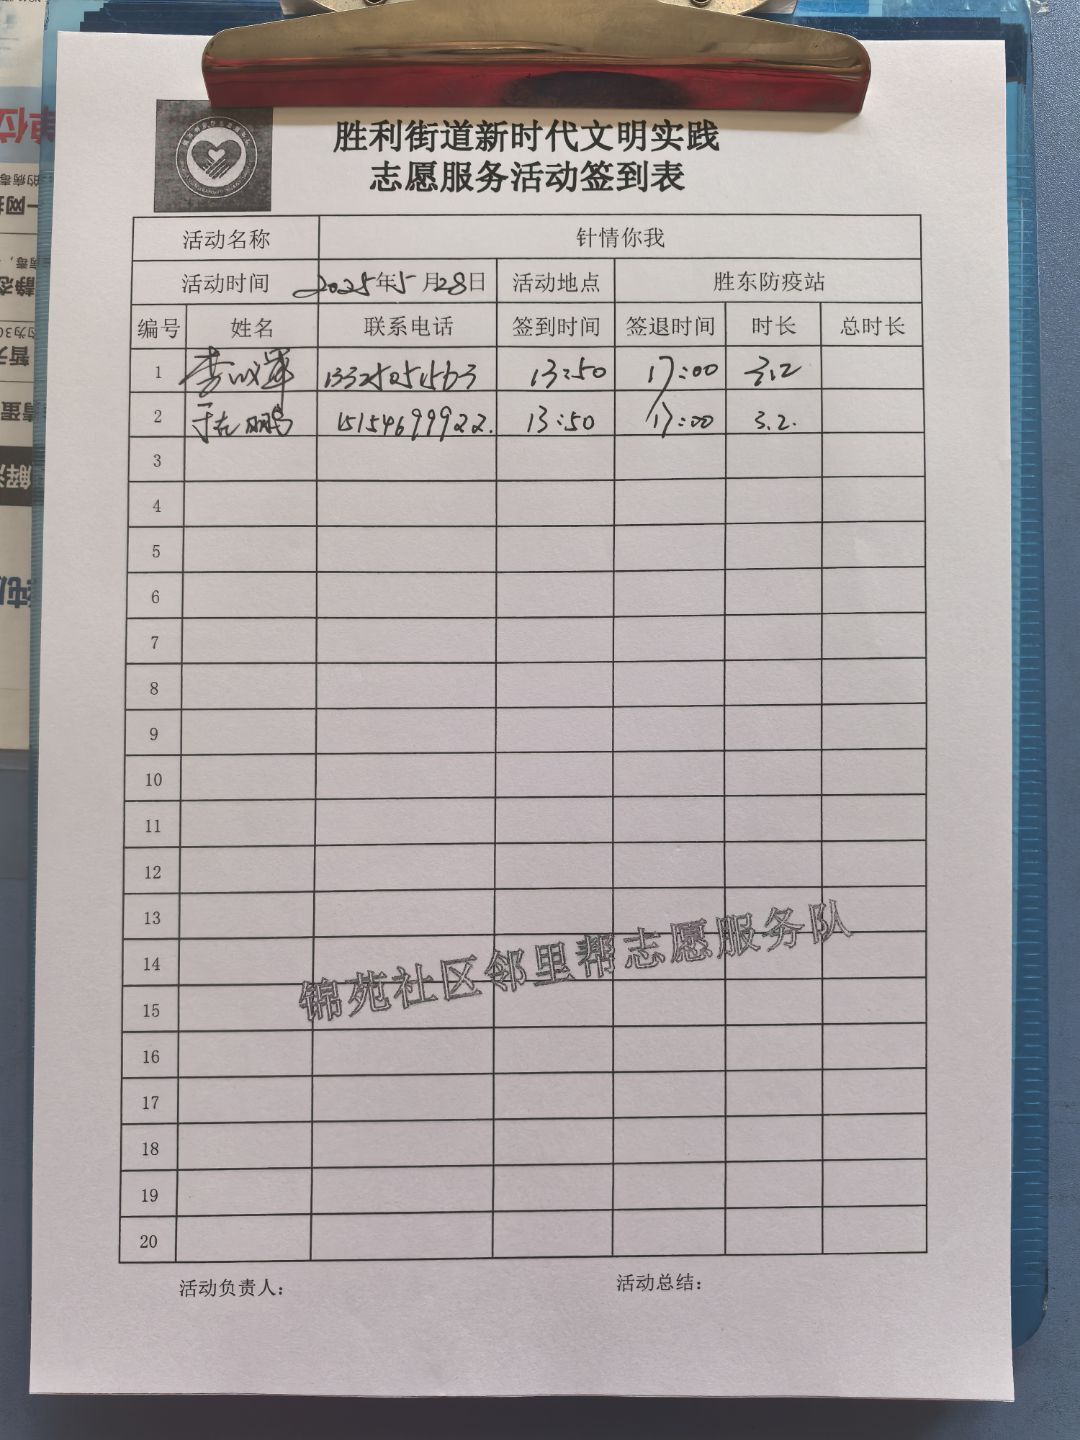 胜利街道新时代文明实践
志愿服务活动签到表
活动名称 针情你我
活动时间 2025年5月28日 活动地点 胜东防疫站
编号 姓名 联系电话 签到时间 签退时间 时长 总时长
1 13:50 17:00 3.2
2 15154699922. 13:50 17:00 3.2.
3
4
5
6
7
8
9
10
11
12
13
14
15
16
17
18
19
20
锦苑社区邻里帮志愿服务队
活动负责人： 活动总结：